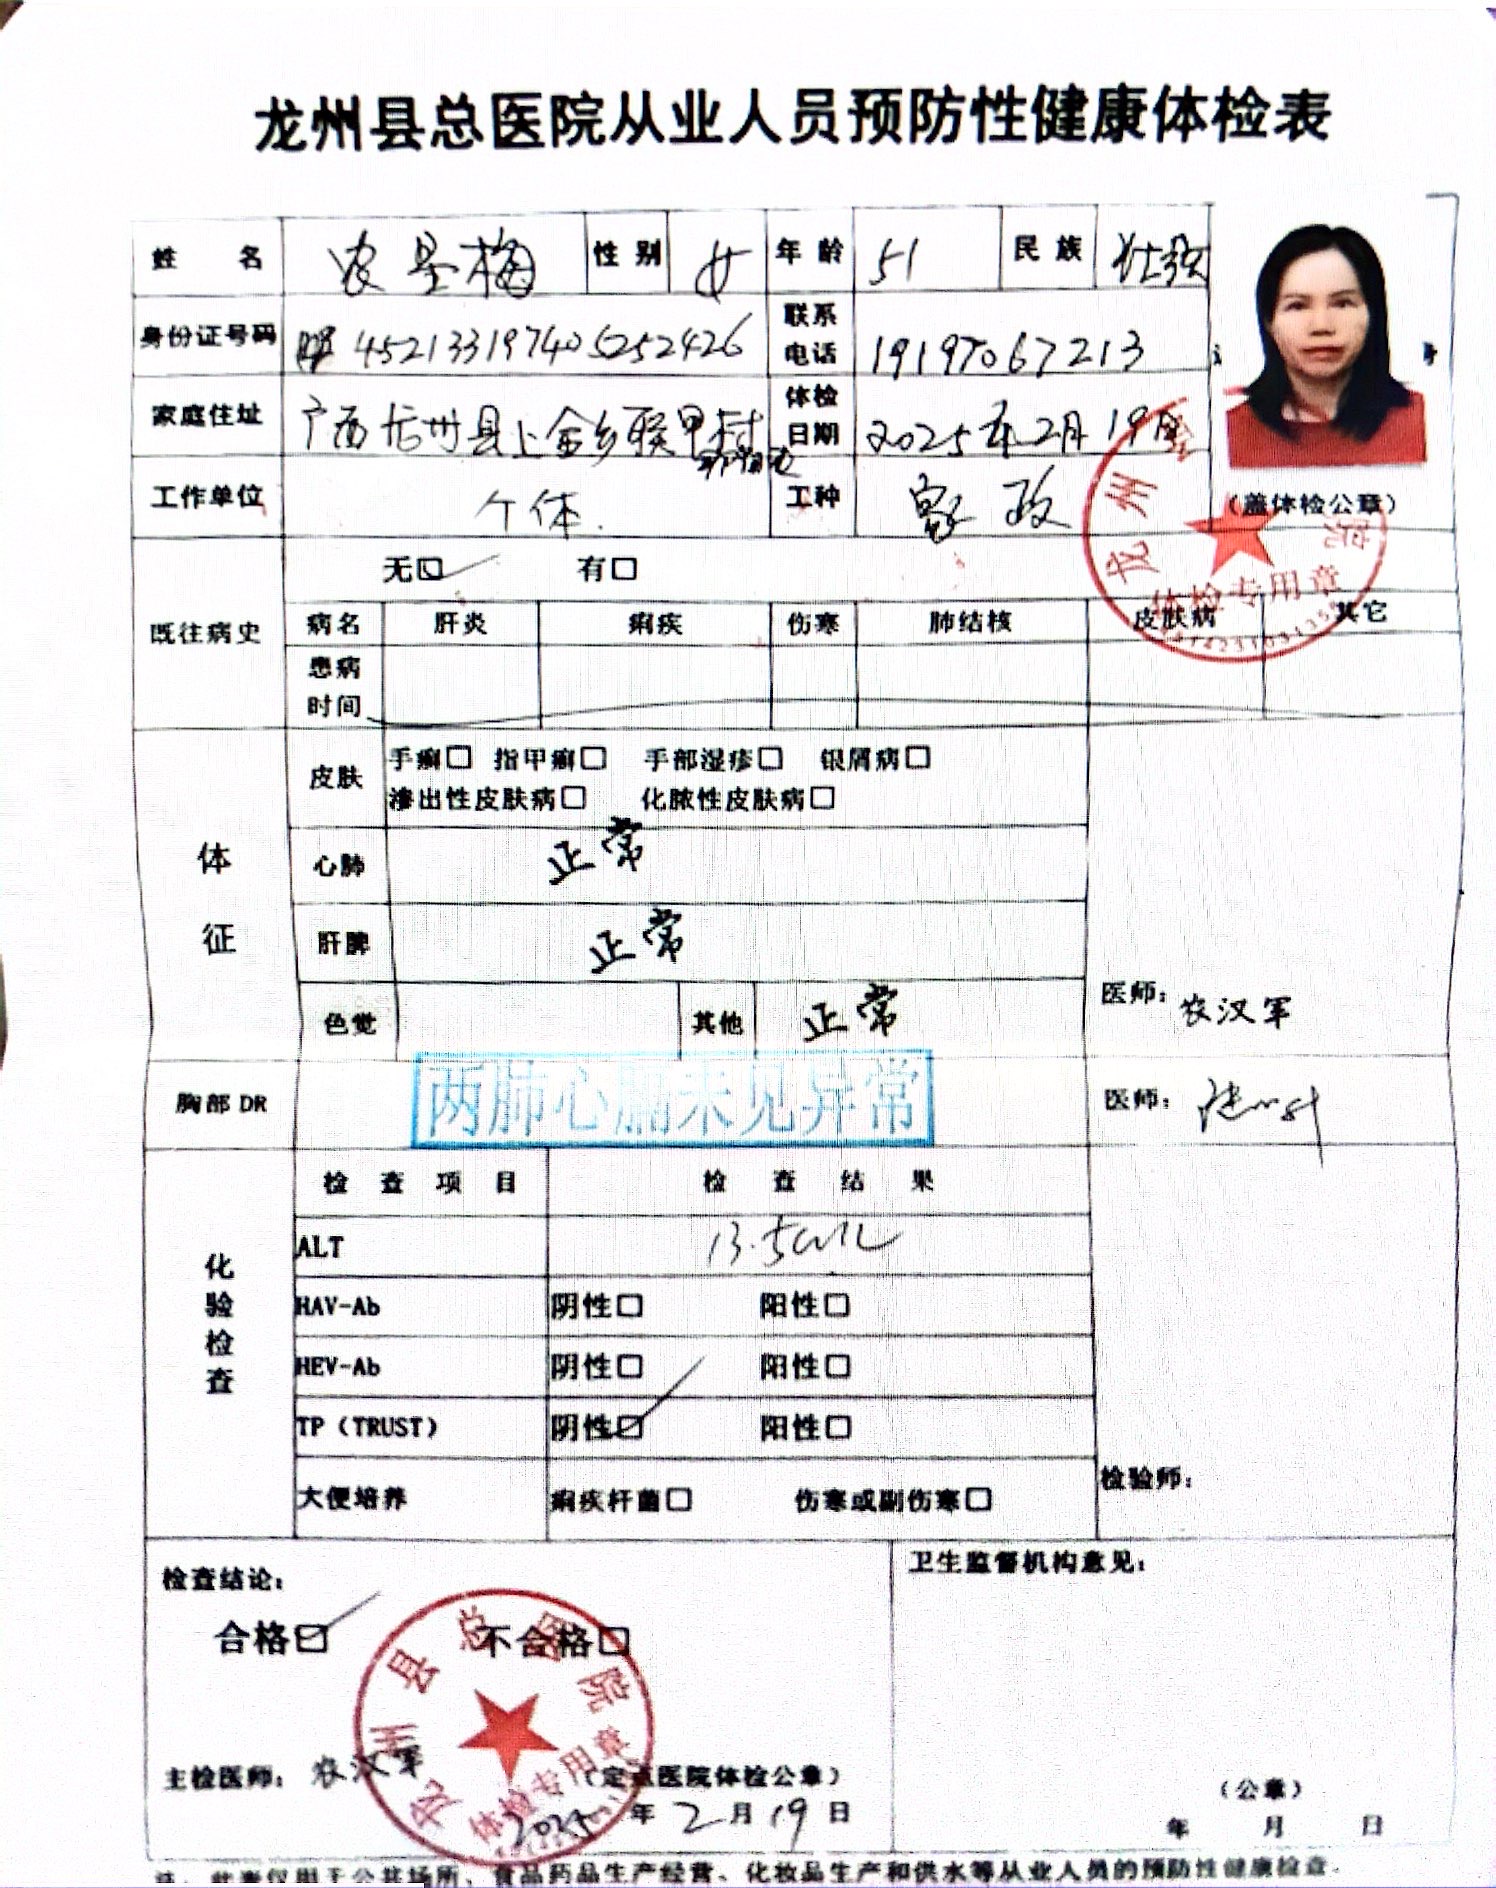 龙州县总医院从业人员预防性健康体检表
姓 名 农 梅 性 别 女 年 龄 51 民 族 壮族
身份证号码 452133197405252426 联系电话 19197067213
家庭住址 广西龙州县上金乡联甲村 体检日期 2025年2月19日
工作单位 个体 工种 家政
(盖体检公章)
龙州县总医院
体检专用章
既往病史 无☑ 有□
病名 肝炎 痢疾 伤寒 肺结核 皮肤病 其它
患病时间
体征 皮肤 手癣□ 指甲癣□ 手部湿疹□ 银屑病□
渗出性皮肤病□ 化脓性皮肤病□
心肺 正常
肝脾 正常
色觉 其他 正常 医师: 农汉军
胸部 DR 两肺心膈未见异常 医师:
化验检查 检 查 项 目 检 查 结 果
ALT 13.5u/L
HAV-Ab 阴性□ 阳性□
HEV-Ab 阴性□ 阳性□
TP(TRUST) 阴性☑ 阳性□
大便培养 痢疾杆菌□ 伤寒或副伤寒□ 检验师:
检查结论: 卫生监督机构意见:
合格☑ 不合格□
龙州县总医院
体检专用章
主检医师: 农汉军 (定点医院体检公章) (公章)
2025年2月19日 年 月 日
注: 此表仅用于公共场所、食品药品生产经营、化妆品生产和供水等从业人员的预防性健康检查.